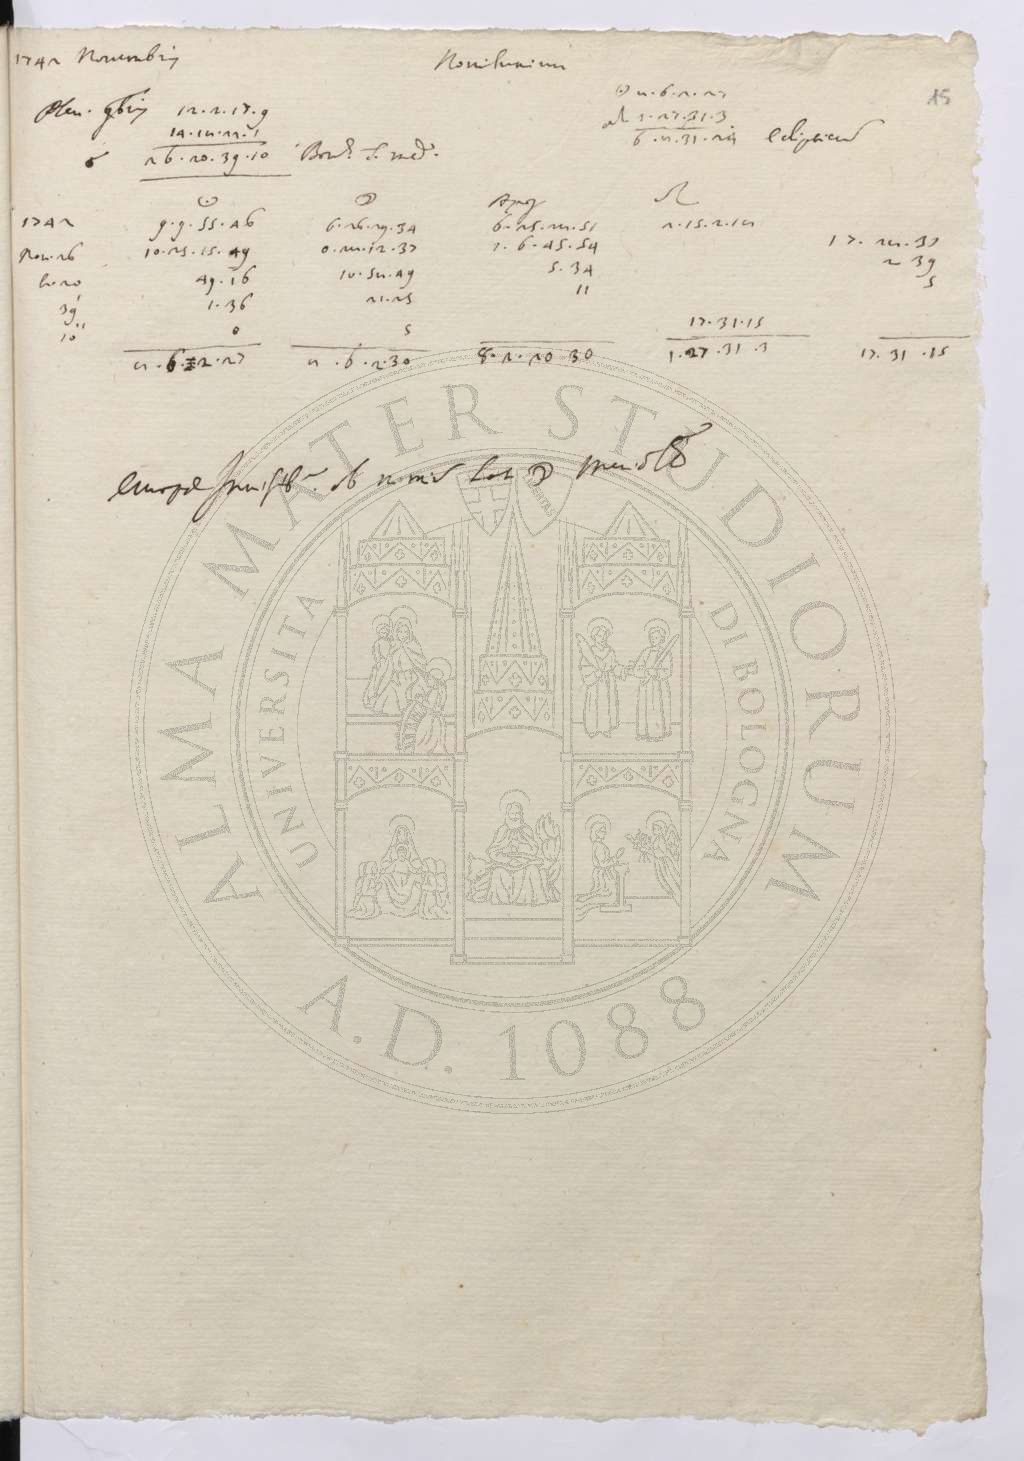 1742 Novembris
Novilunium
15
Plen. 9bris 12.2.17.9
14.18.22.1
☌ 26.20.39.10 Bon. T. med.
☉ 8.6.2.27
☊ 1.27.31.3
6.8.31.24 eclipticum
☉ ☽ Apog ☊
1742 9.9.55.46 6.26.29.34 6.25.28.51 2.15.2.18
Nov. 26 10.25.15.49 0.28.12.37 1.6.45.54 17.28.31
h. 20 49.16 10.58.49 5.34 2 39
39' 1.36 21.25 11 5
10'' 0 5 17.31.15
8.6.2.27 8.6.2.30 8.2.20 30 1.27.31.3 17.31.15
ob nimiam Lat ☽
ALMA MATER STUDIORUM
UNIVERSITA DI BOLOGNA
A.D. 1088